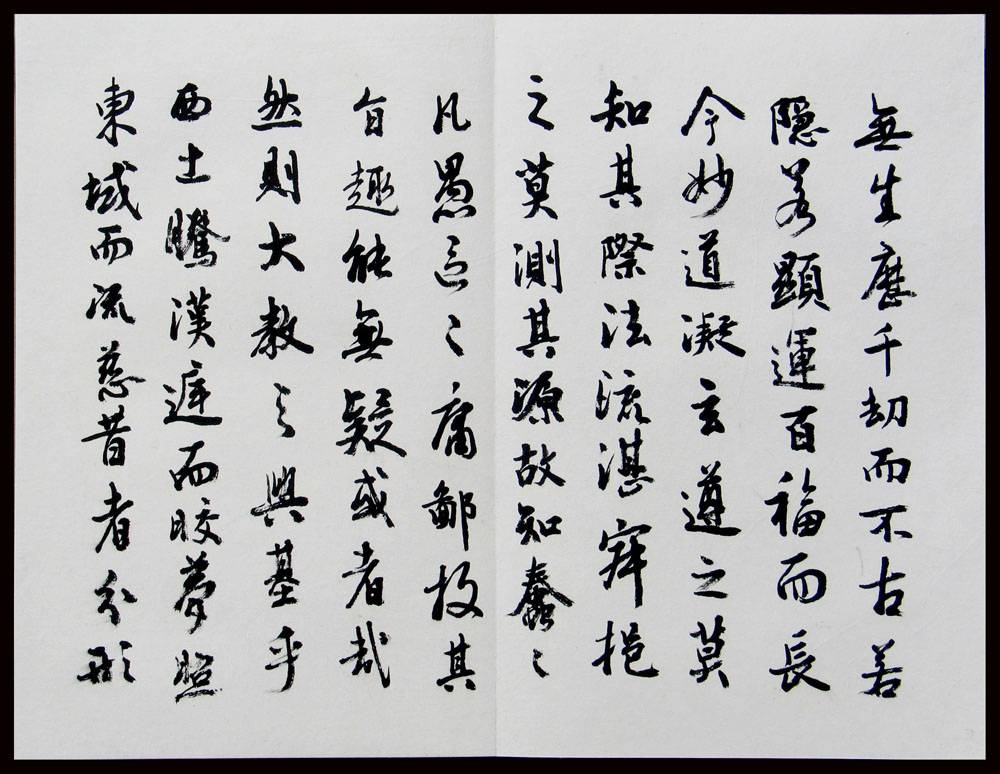 無生歷千劫而不古若
隱若顯運百福而長
今妙道凝玄遵之莫
知其際法流湛寂挹
之莫測其源故知蠢〻
凡愚區〻庸鄙投其
旨趣能無疑惑者哉
然則大教之興基乎
西土騰漢庭而皎夢照
東域而流慈昔者分形